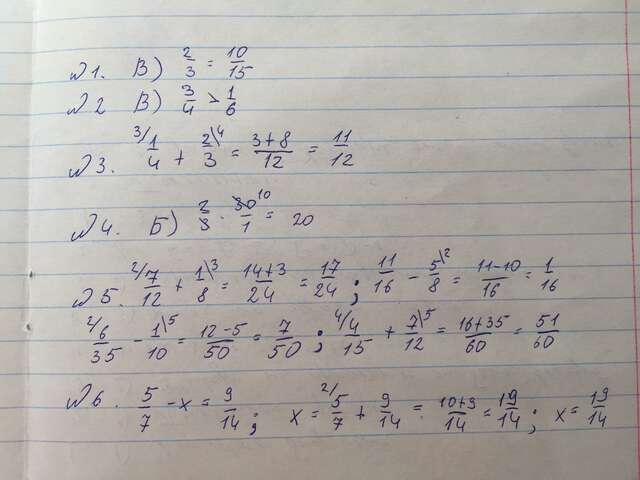 №1. В) 2/3 = 10/15
№2 В) 3/4 > 1/6
№3. ³⁄1/4 + 2/3\⁴ = 3+8/12 = 11/12
№4. Б) 2/3 · 30/1 ¹⁰ = 20
№5. ²⁄7/12 + 1/8\³ = 14+3/24 = 17/24 ; 11/16 - 5/8\² = 11-10/16 = 1/16
²⁄6/35 - 1/10\⁵ = 12-5/50 = 7/50 ; ⁴⁄4/15 + 7/12\⁵ = 16+35/60 = 51/60
№6. 5/7 - x = 9/14 ; x = ²⁄5/7 + 9/14 = 10+9/14 = 19/14 ; x = 19/14